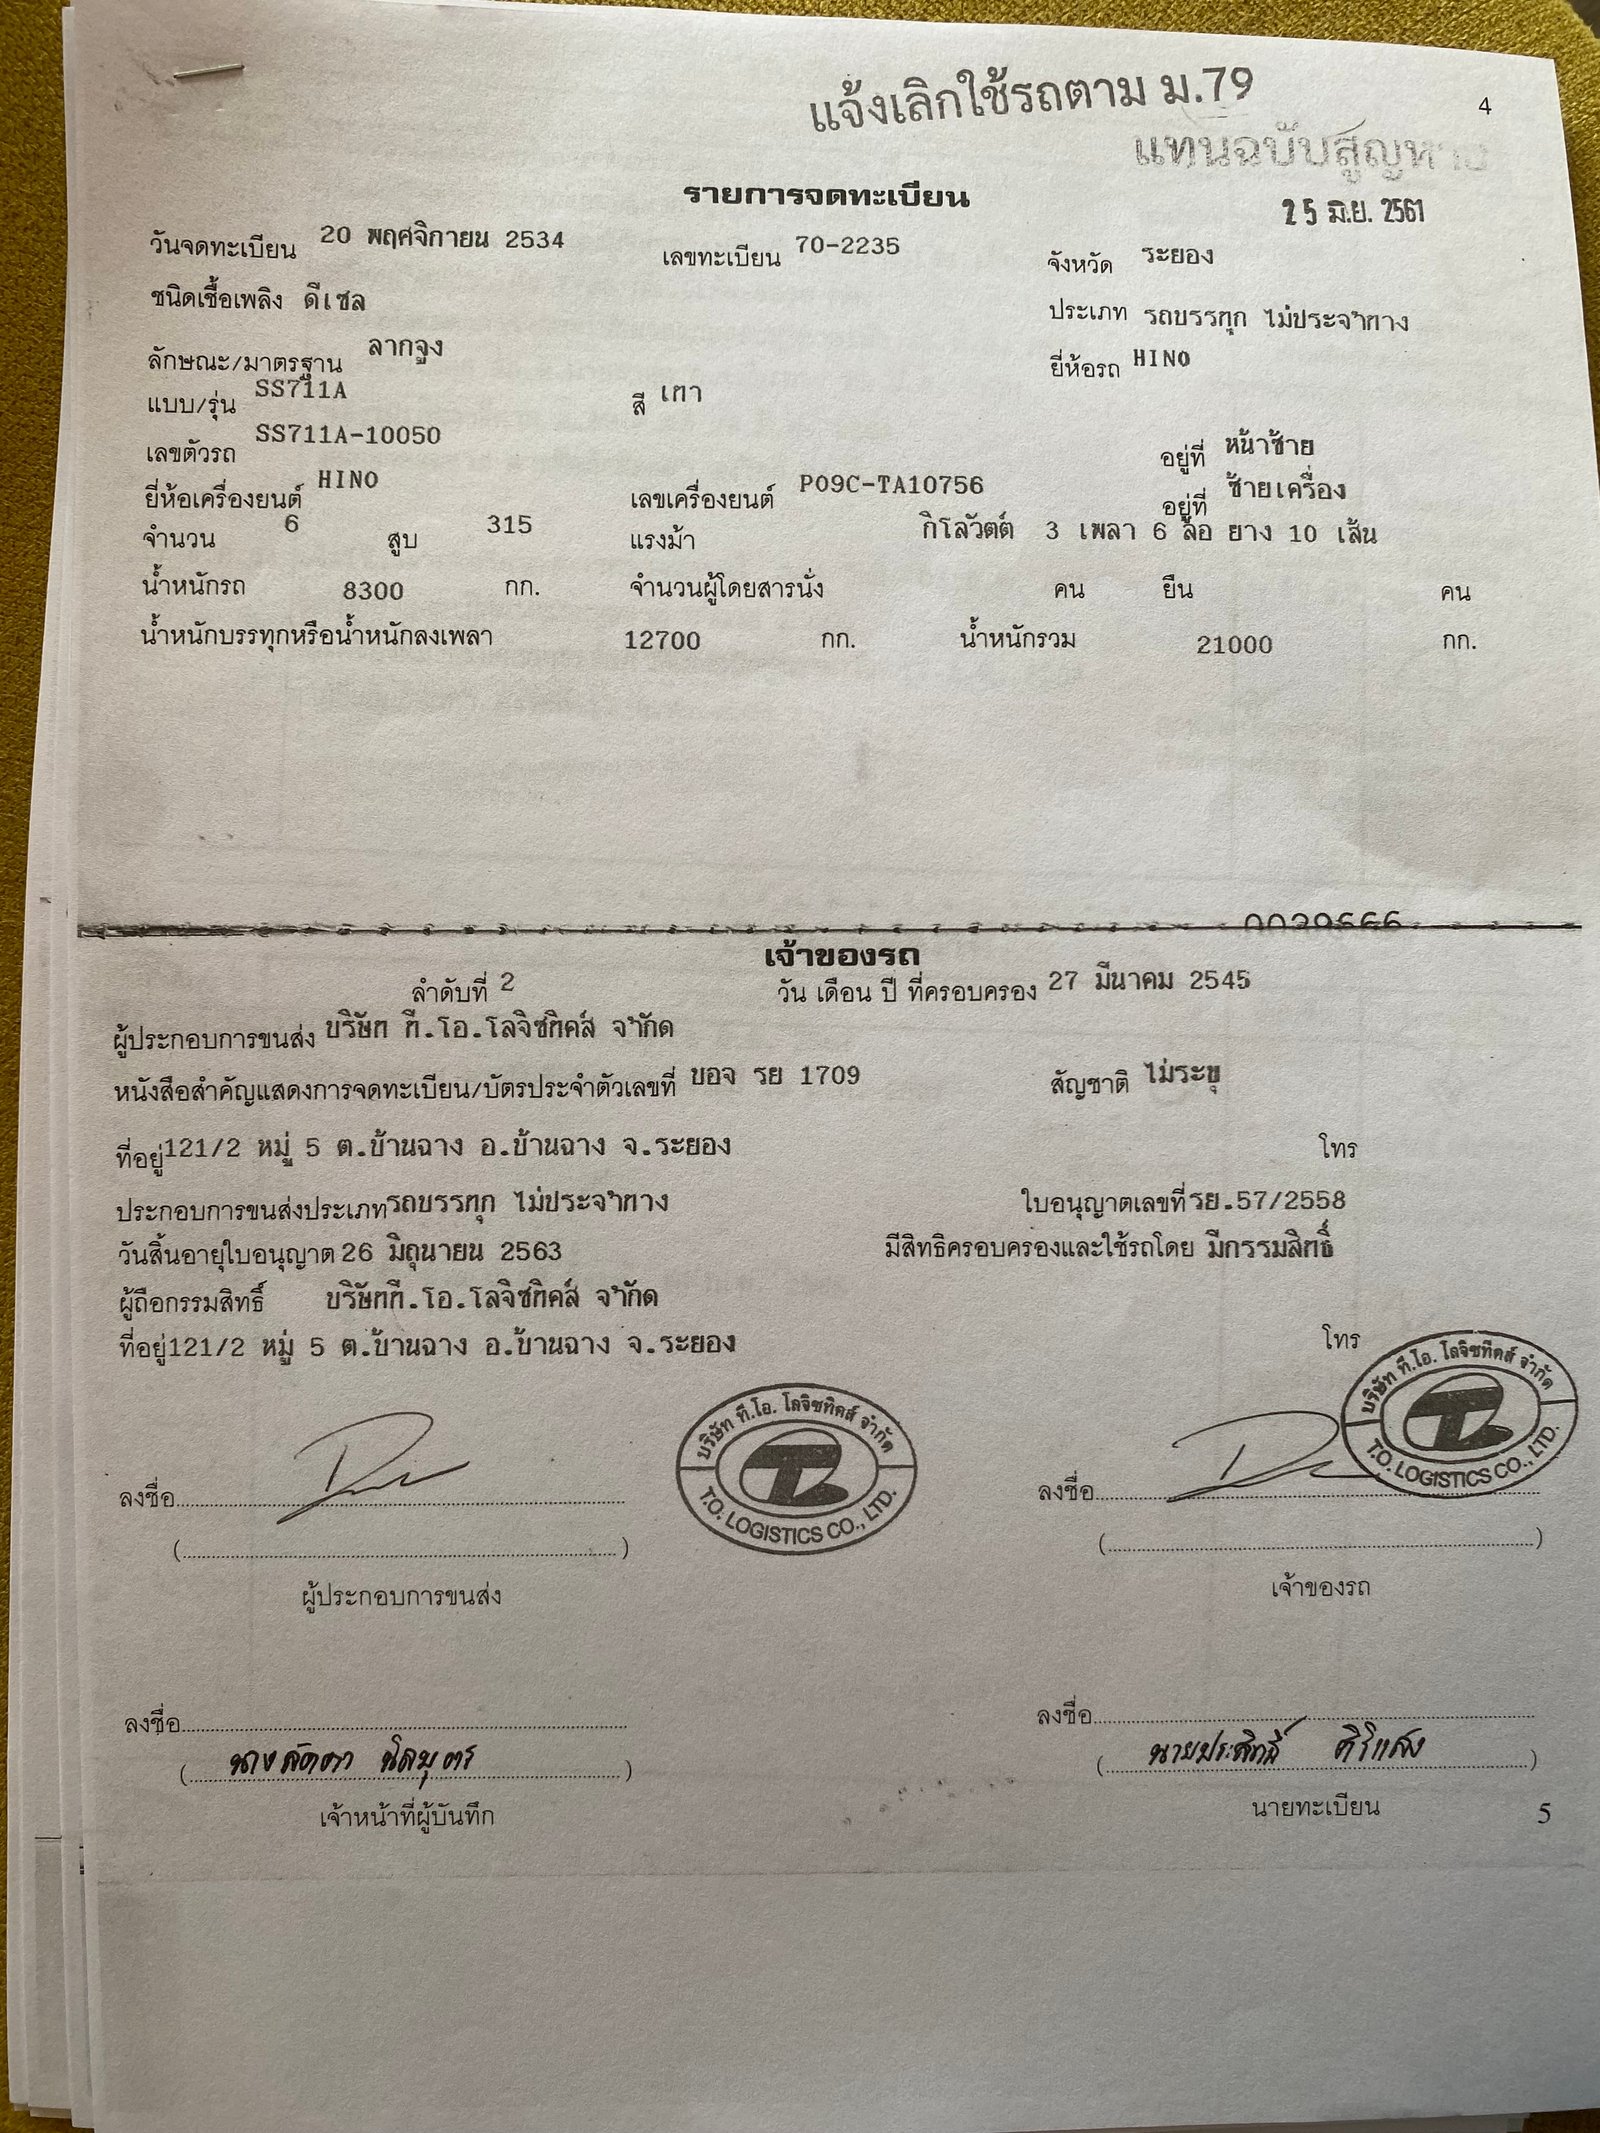 แจ้งเลิกใช้รถตาม ม.79
4
แทนฉบับสูญหาย
รายการจดทะเบียน
25 มิ.ย. 2561
วันจดทะเบียน 20 พฤศจิกายน 2534 เลขทะเบียน 70-2235 จังหวัด ระยอง
ชนิดเชื้อเพลิง ดีเซล ประเภท รถบรรทุก ไม่ประจำทาง
ลักษณะ/มาตรฐาน ลากจูง ยี่ห้อรถ HINO
แบบ/รุ่น SS711A สี เทา
เลขตัวรถ SS711A-10050 อยู่ที่ หน้าซ้าย
ยี่ห้อเครื่องยนต์ HINO เลขเครื่องยนต์ P09C-TA10756 อยู่ที่ ซ้ายเครื่อง
จำนวน 6 สูบ 315 แรงม้า กิโลวัตต์ 3 เพลา 6 ล้อ ยาง 10 เส้น
น้ำหนักรถ 8300 กก. จำนวนผู้โดยสารนั่ง คน ยืน คน
น้ำหนักบรรทุกหรือน้ำหนักลงเพลา 12700 กก. น้ำหนักรวม 21000 กก.
0039666
เจ้าของรถ
ลำดับที่ 2 วัน เดือน ปี ที่ครอบครอง 27 มีนาคม 2545
ผู้ประกอบการขนส่ง บริษัท ที.โอ.โลจิซทิคส์ จำกัด
หนังสือสำคัญแสดงการจดทะเบียน/บัตรประจำตัวเลขที่ ขอจ รย 1709 สัญชาติ ไม่ระบุ
ที่อยู่ 121/2 หมู่ 5 ต.บ้านฉาง อ.บ้านฉาง จ.ระยอง โทร
ประกอบการขนส่งประเภท รถบรรทุก ไม่ประจำทาง ใบอนุญาตเลขที่ รย.57/2558
วันสิ้นอายุใบอนุญาต 26 มิถุนายน 2563 มีสิทธิครอบครองและใช้รถโดย มีกรรมสิทธิ์
ผู้ถือกรรมสิทธิ์ บริษัทที.โอ.โลจิซทิคส์ จำกัด
ที่อยู่ 121/2 หมู่ 5 ต.บ้านฉาง อ.บ้านฉาง จ.ระยอง โทร
บริษัท ที.โอ. โลจิซทิคส์ จำกัด
T.O. LOGISTICS CO., LTD.
บริษัท ที.โอ. โลจิซทิคส์ จำกัด
T.O. LOGISTICS CO., LTD.
ลงชื่อ ลงชื่อ
( ) ( )
ผู้ประกอบการขนส่ง เจ้าของรถ
ลงชื่อ ลงชื่อ
( นางลัดดา นิลบุตร ) ( นายประสิทธิ์ ศิริแสง )
เจ้าหน้าที่ผู้บันทึก นายทะเบียน
5